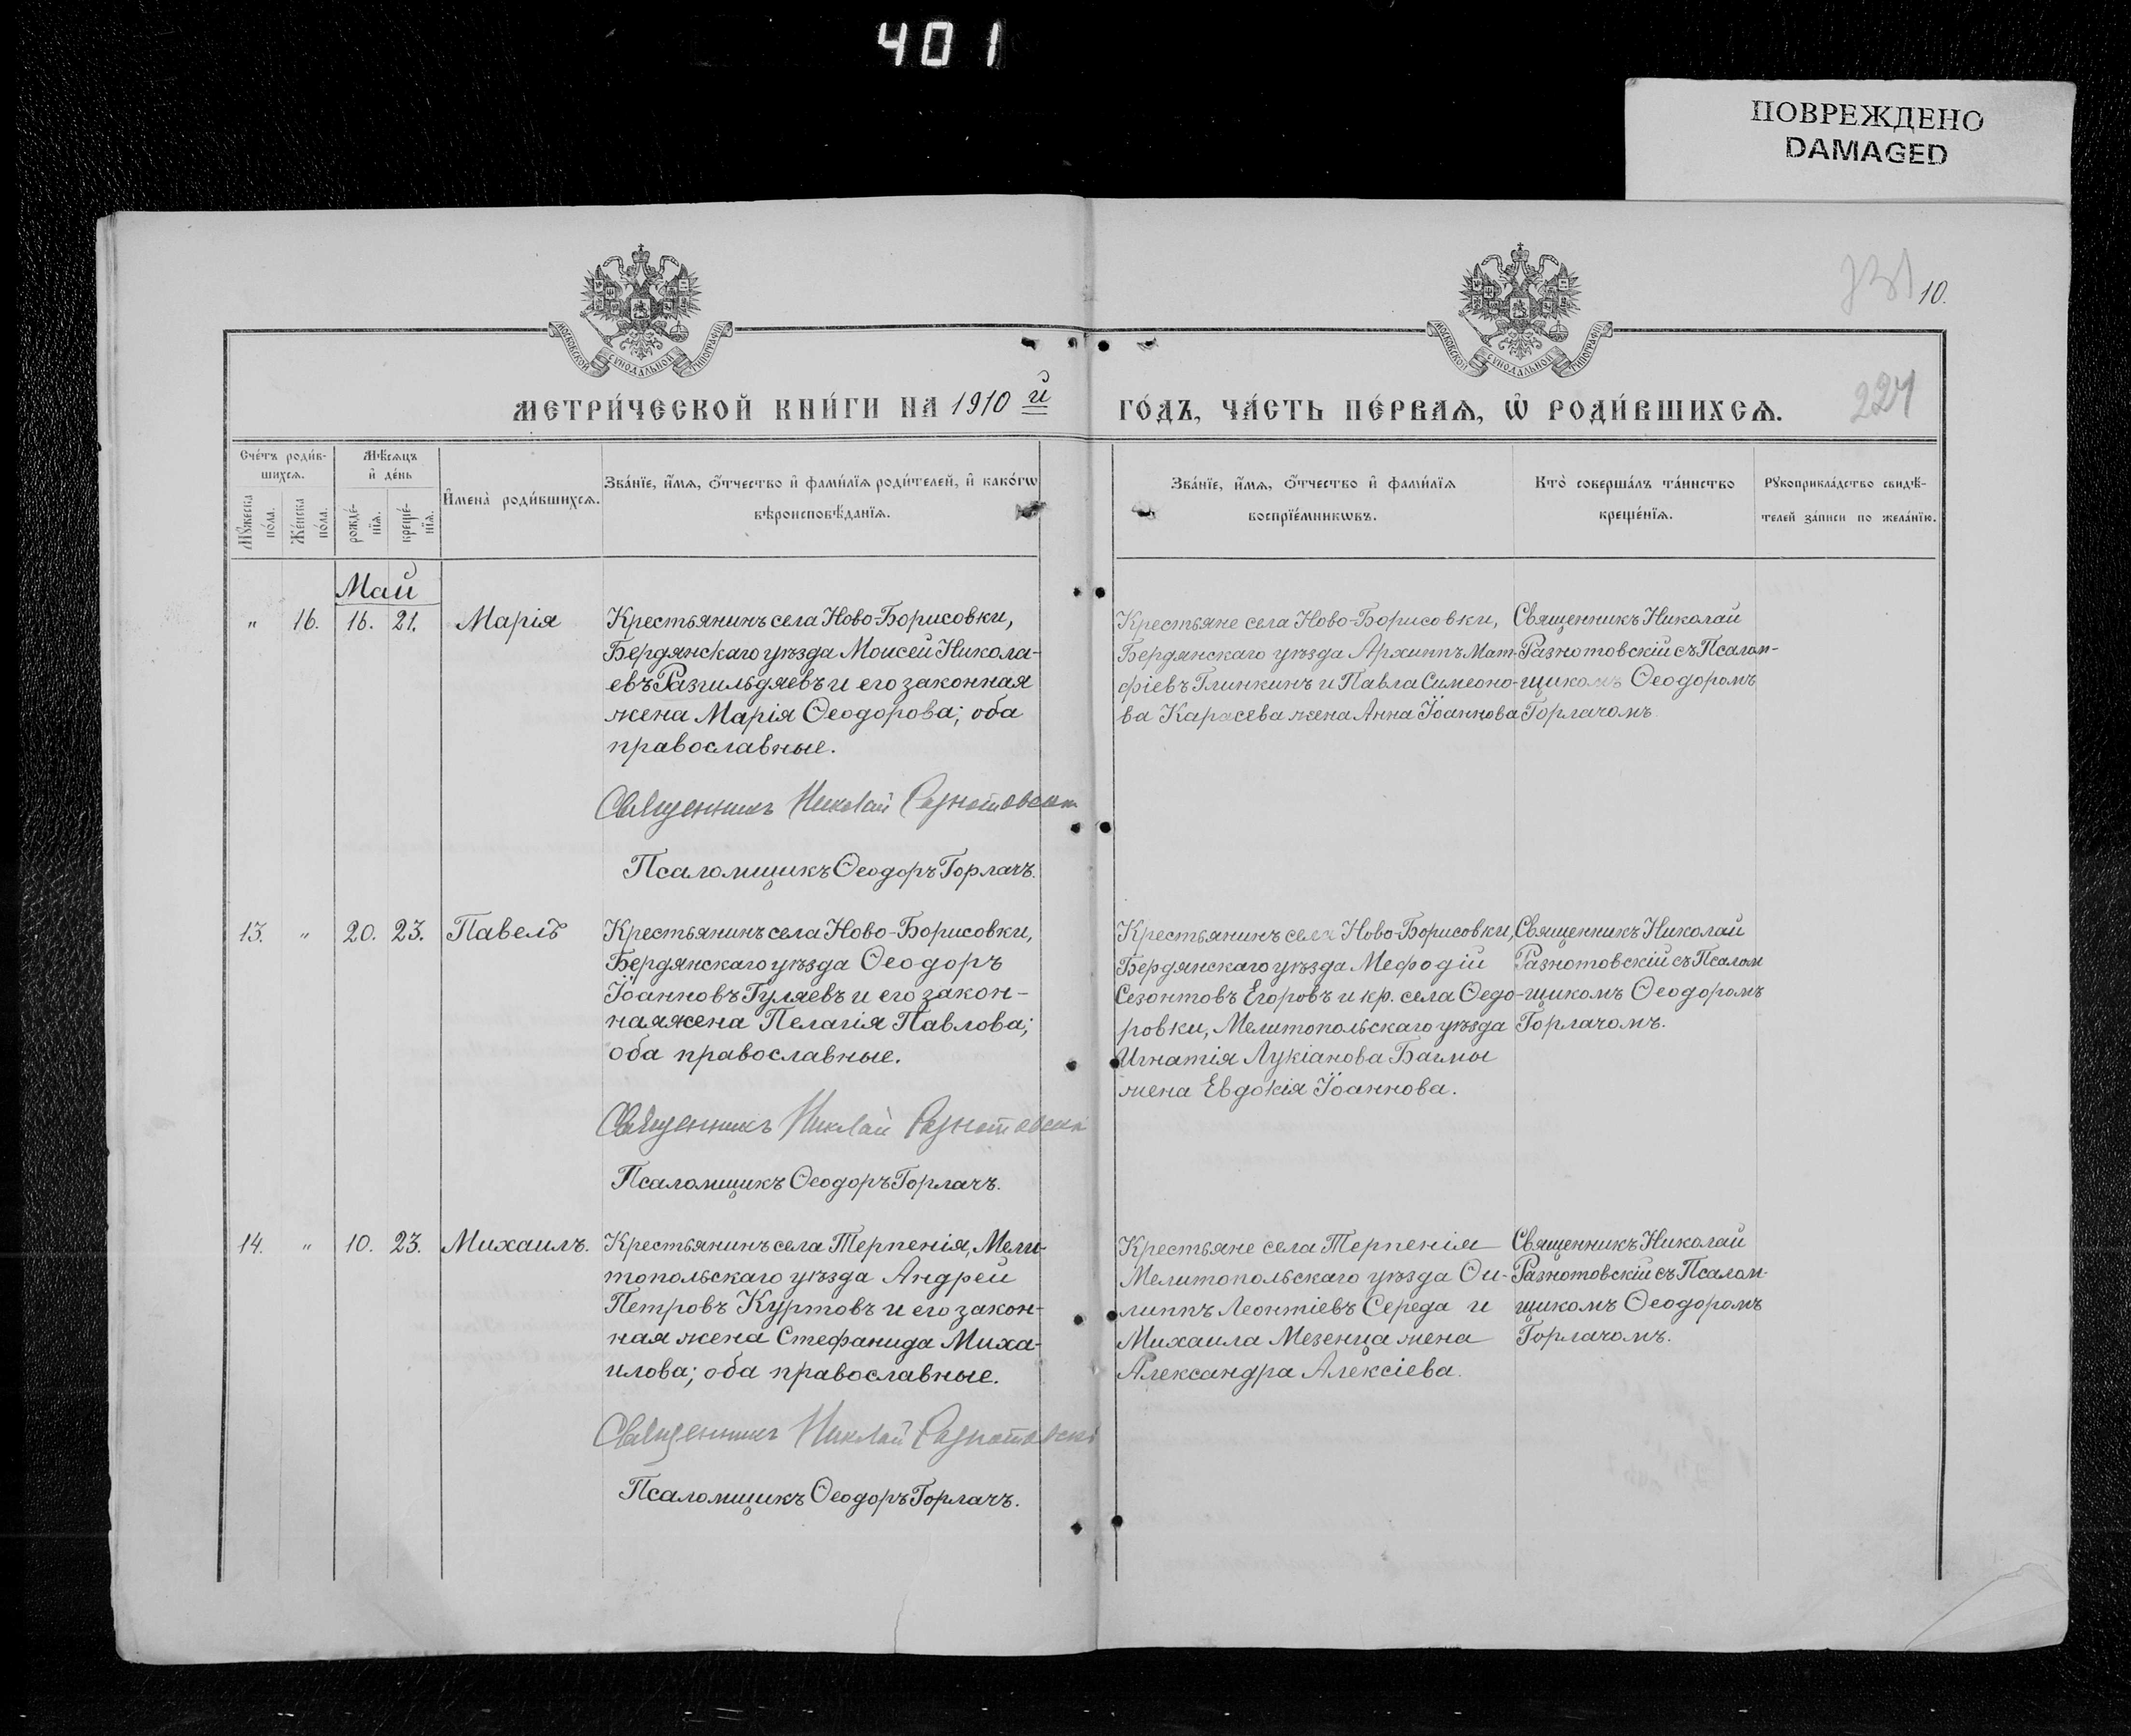 401
ПОВРЕЖДЕНО
DAMAGED
МОСКОВСКОЙ СѴНОДАЛЬНОЙ ТИПОГРАФІИ
МОСКОВСКОЙ СѴНОДАЛЬНОЙ ТИПОГРАФІИ
10.
МЕТРИ́ЧЕСКОЙ КНИ́ГИ НА 1910 й
ГО́ДЪ, ЧА́СТЬ ПЕ́РВАѦ, Ѡ҆ РОДИ́ВШИХСѦ.
224
Сче́тъ роди́в-
шихсѧ.
Мꙋ́жеска
по́ла.
Же́нска
по́ла.
Мѣ́сѧцъ
и҆ де́нь
рожде́-
нїѧ.
креще́-
нїѧ.
И҆мена̀ роди́вшихсѧ.
Зва́нїе, и҆́мѧ, ѻ҆́тчество и҆ фами́лїѧ роди́телей, и҆ како́гѡ
вѣроисповѣ́данїѧ.
Зва́нїе, и҆́мѧ, ѻ҆́тчество и҆ фами́лїѧ
воспрїе́мникѡвъ.
Кто̀ соверша́лъ та́инство
креще́нїѧ.
Рꙋкоприкла́дство свидѣ́-
телей за́писи по жела́нїю.
Май
" 16. 16. 21. Марія
Крестьянинъ села Ново-Борисовки,
Бердянскаго уѣзда Моисей Никола-
евъ Разгильдяевъ и его законная
жена Марія Ѳеодорова; оба
православные.
Священникъ Николай Разнотовскій
Псаломщикъ Ѳеодоръ Горлачъ.
Крестьяне села Ново-Борисовки,
Бердянскаго уѣзда Архиппъ Мат-
фіевъ Глинкинъ и Павла Симеоно-
ва Карасева жена Анна Іоаннова
Священникъ Николай
Разнотовскій съ Псалом-
щикомъ Ѳеодоромъ
Горлачомъ.
13. " 20. 23. Павелъ
Крестьянинъ села Ново-Борисовки,
Бердянскаго уѣзда Ѳеодоръ
Іоанновъ Гуляевъ и его закон-
ная жена Пелагія Павлова;
оба православные.
Священникъ Николай Разнотовскій
Псаломщикъ Ѳеодоръ Горлачъ.
Крестьянинъ села Ново-Борисовки,
Бердянскаго уѣзда Мефодій
Сезонтовъ Егоровъ и кр. села Ѳедо-
ровки, Мелитопольскаго уѣзда
Игнатія Лукіанова Багмы
жена Евдокія Іоаннова.
Священникъ Николай
Разнотовскій съ Псалом
щикомъ Ѳеодоромъ
Горлачомъ.
14. " 10. 23. Михаилъ.
Крестьянинъ села Терпенія, Мели-
топольскаго уѣзда Андрей
Петровъ Куртовъ и его закон-
ная жена Стефанида Миха-
илова; оба православные.
Священникъ Николай Разнотовскій
Псаломщикъ Ѳеодоръ Горлачъ.
Крестьяне села Терпенія
Мелитопольскаго уѣзда Фи-
липпъ Леонтіевъ Середа и
Михаила Мезенца жена
Александра Алексіева.
Священникъ Николай
Разнотовскій съ Псалом-
щикомъ Ѳеодоромъ
Горлачомъ.